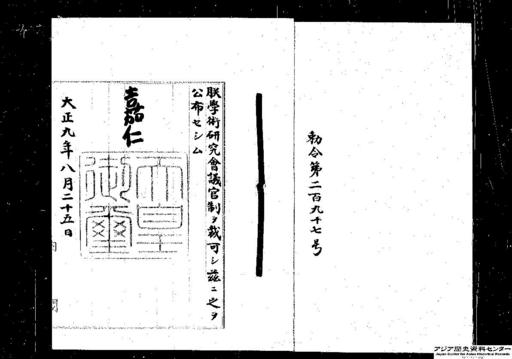 勅令第二百九十七号
朕學術研究會議官制ヲ裁可シ茲ニ之ヲ
公布セシム
嘉仁
天皇御璽
大正九年八月二十五日
内閣
アジア歴史資料センター
Japan Center for Asian Historical Records